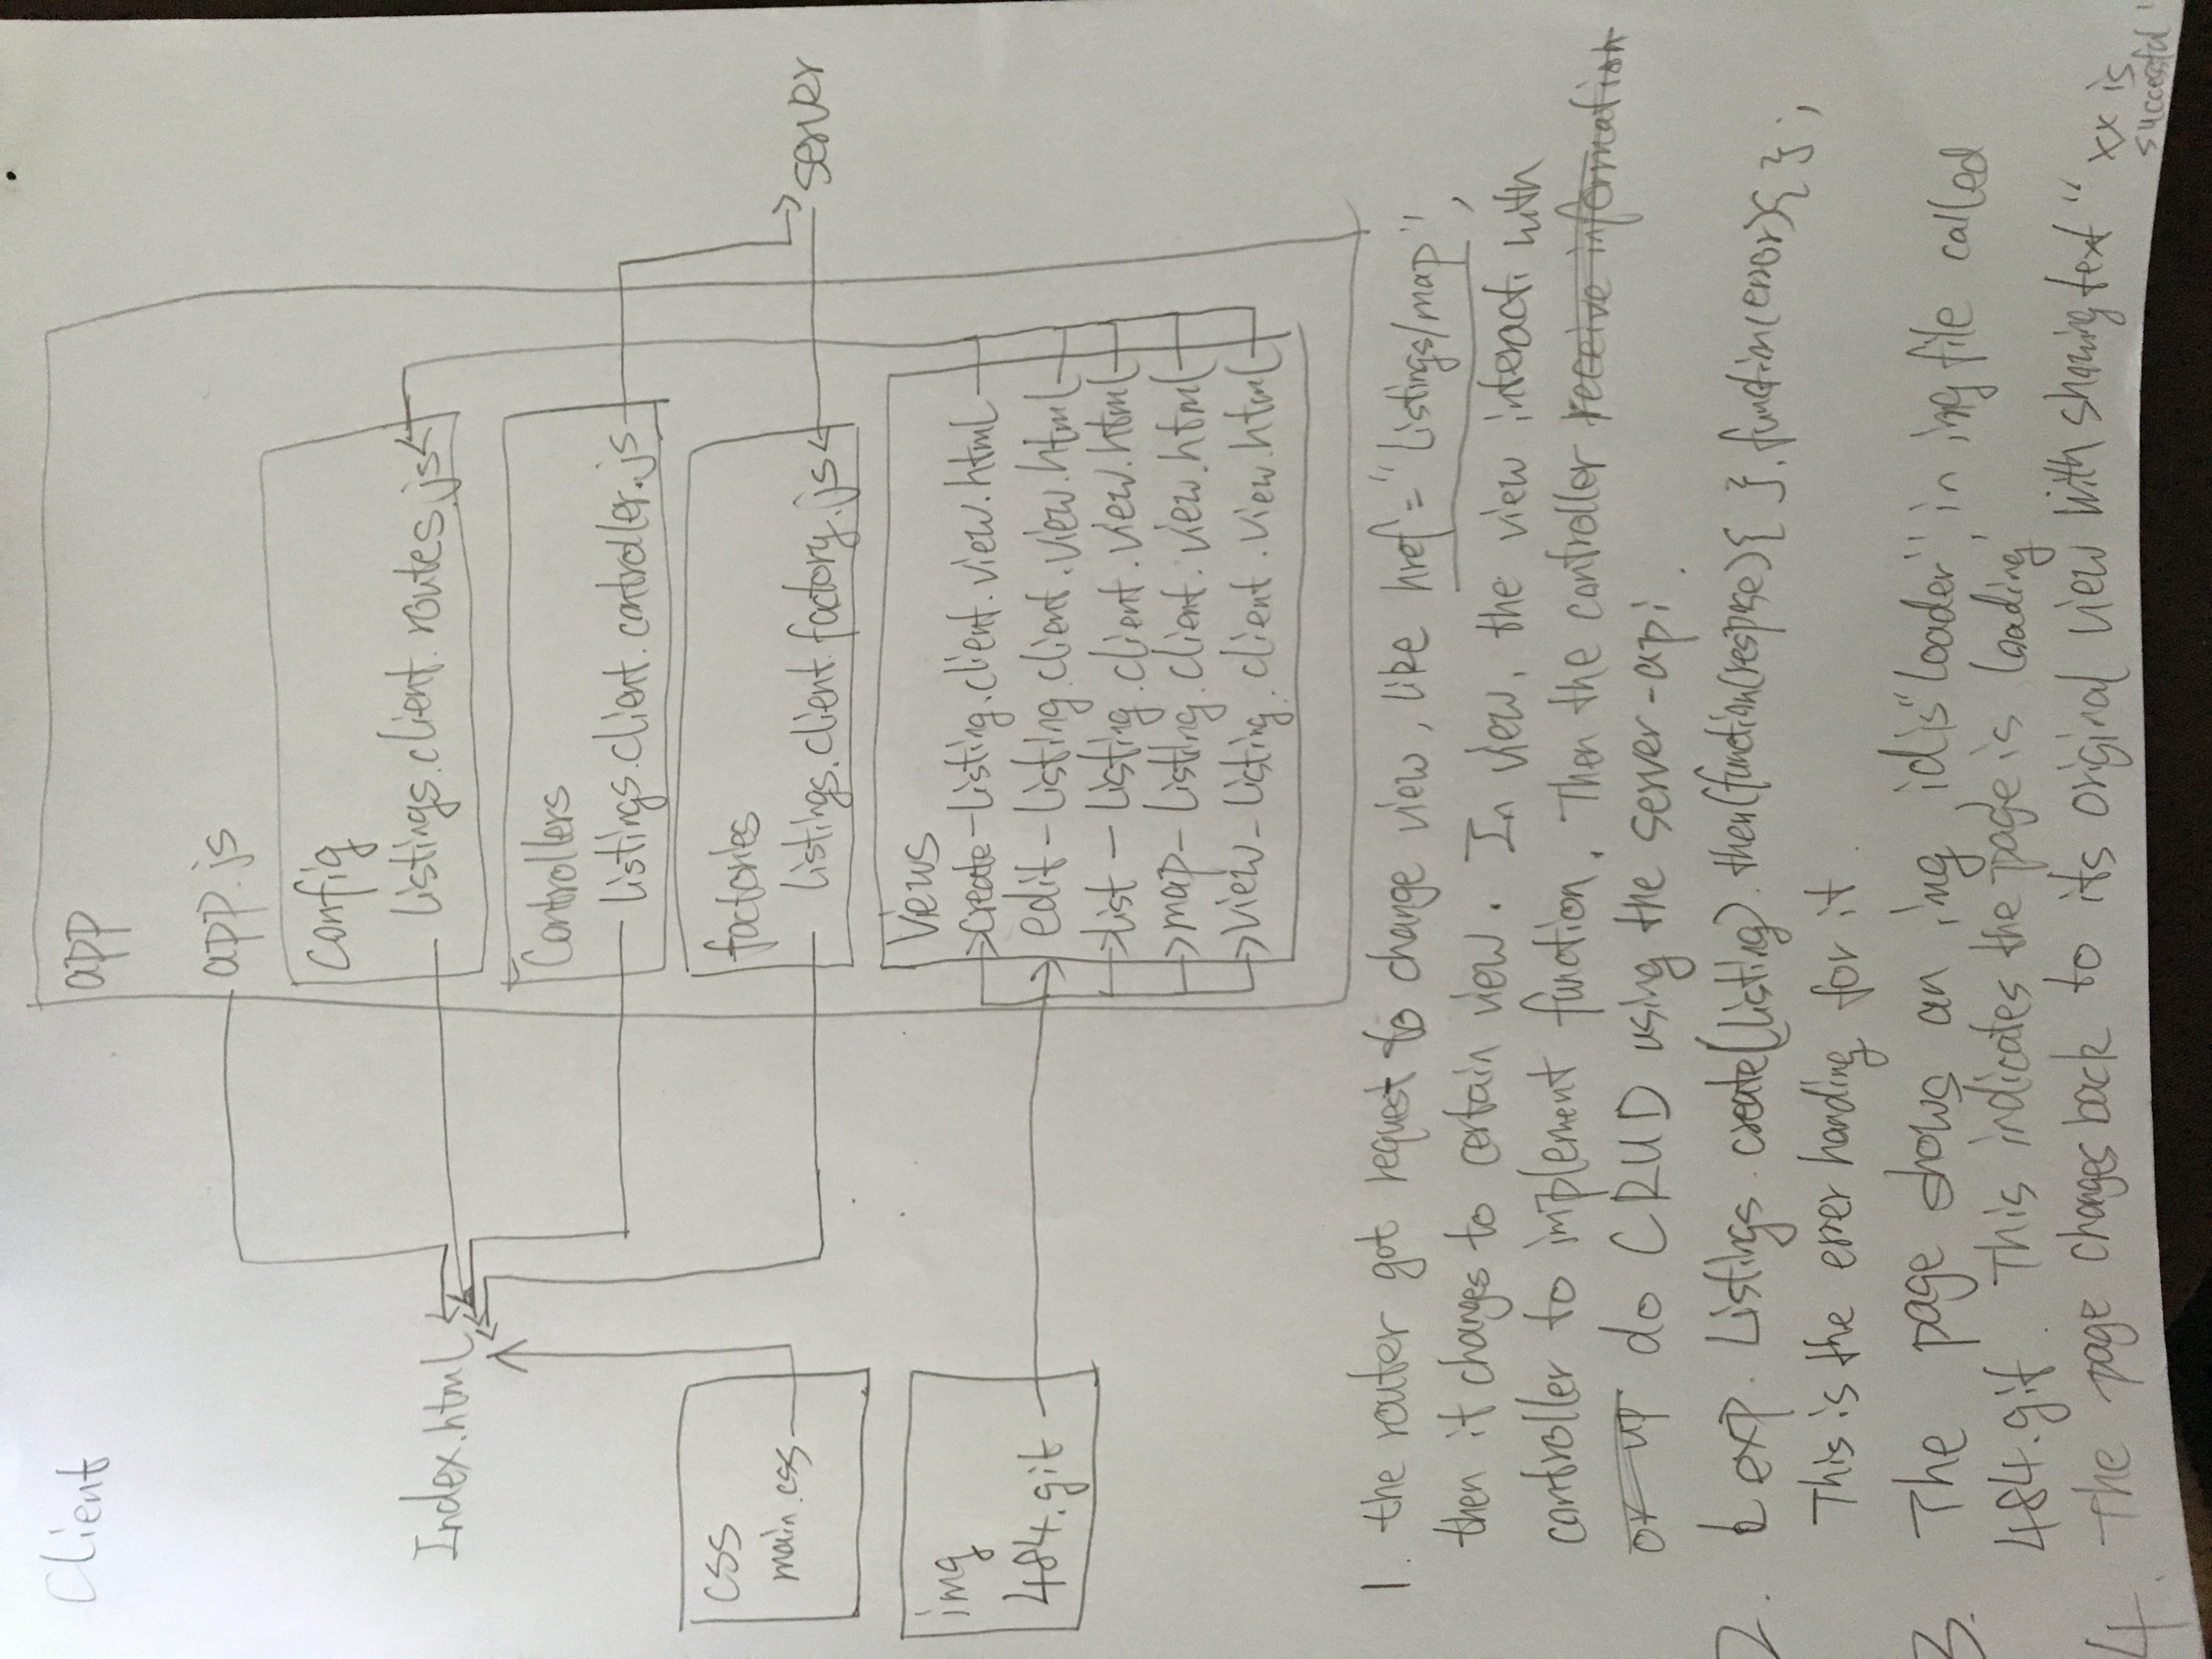 Client
app
app.js
Config
listings.client.routes.js
Index.html
Controllers
listings.client.controller.js
css
main.css
factories
listings.client.factory.js
server
img
484.git
Views
create-listing.client.view.html
edit-listing.client.view.html
list-listing.client.view.html
map-listing.client.view.html
view-listing.client.view.html
1. the router got request to change view, like href="listings/map",
then it changes to certain view. In view, the view interact with
controller to implement function. Then the controller receive information
or up do CRUD using the server-api.
2. exp. Listings.create(listing).then(function(respose){ }, function(error){ };
This is the error handing for it.
3. The page shows an img, id is "loader", in img file called
484.gif. This indicates the page is loading
4. The page changes back to its original view with showing text "xx is
successful"